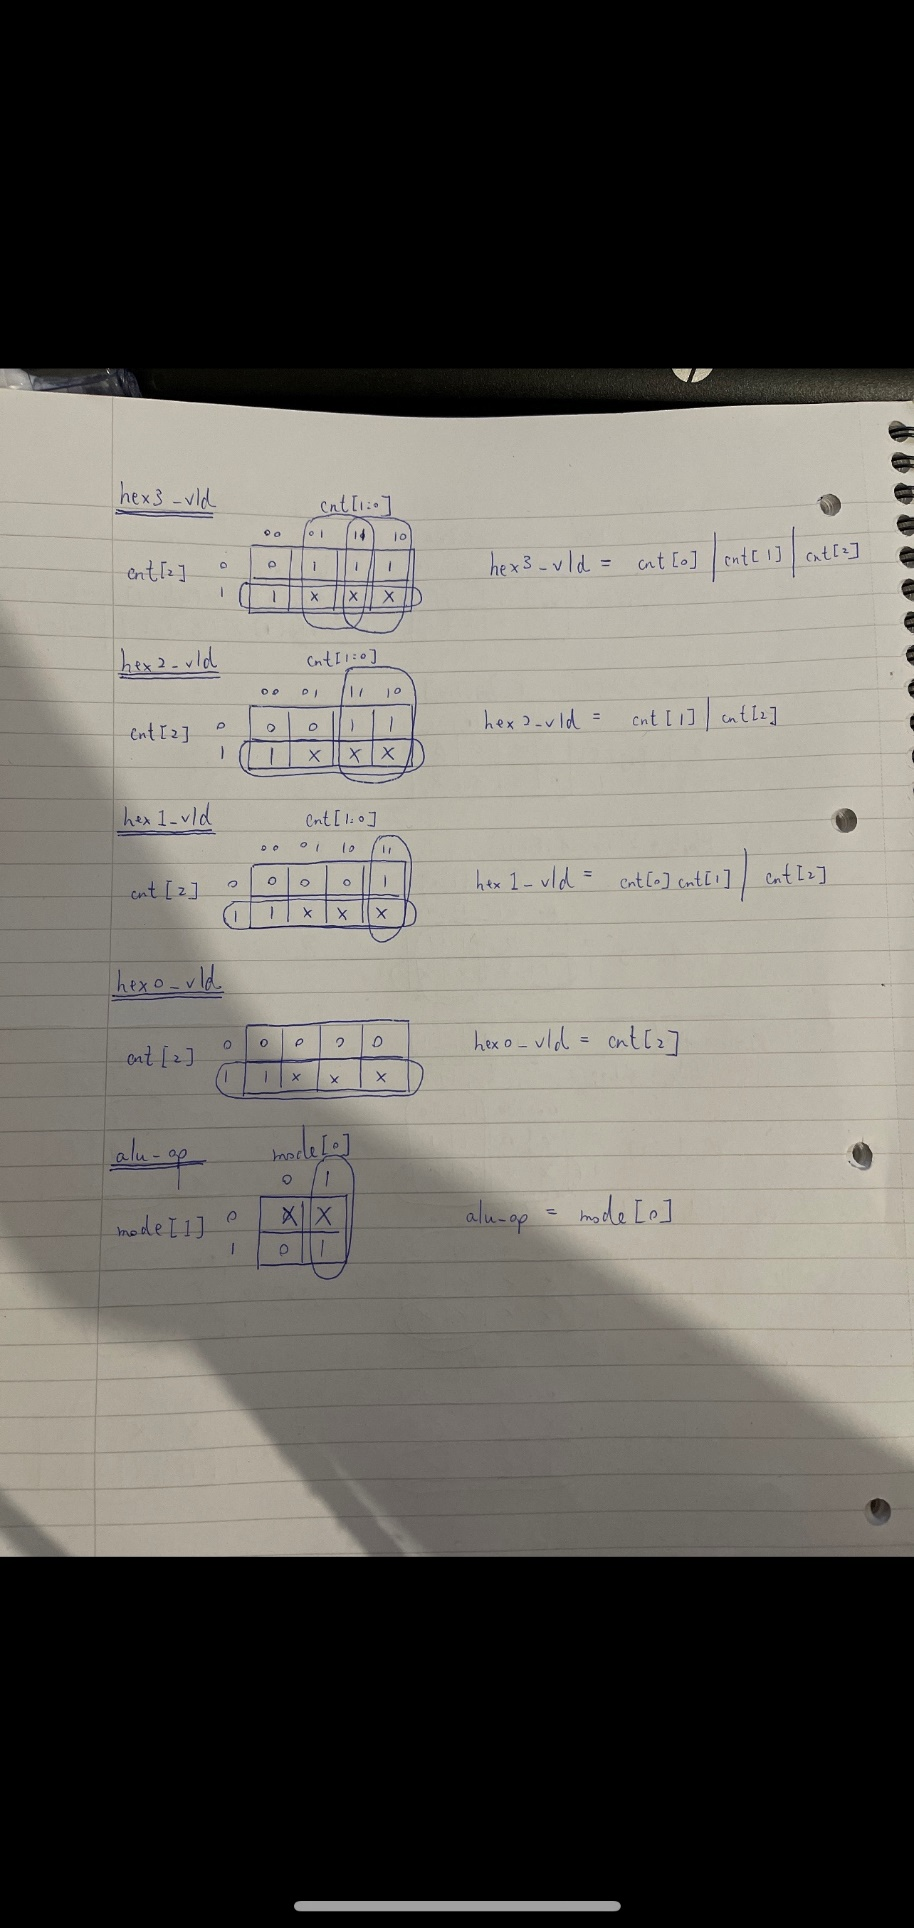 hex3-vld
cnt[1:0]
00 01 11 10
cnt[2] 0 0 1 1 1
1 1 x x x
hex3-vld = cnt[0] | cnt[1] | cnt[2]
hex2-vld
cnt[1:0]
00 01 11 10
cnt[2] 0 0 0 1 1
1 1 x x x
hex2-vld = cnt[1] | cnt[2]
hex1-vld
cnt[1:0]
00 01 10 11
cnt[2] 0 0 0 0 1
1 1 x x x
hex1-vld = cnt[0] cnt[1] | cnt[2]
hex0-vld
cnt[2] 0 0 0 0 0
1 1 x x x
hex0-vld = cnt[2]
alu-op
mode[0]
0 1
mode[1] 0 X X
1 0 1
alu-op = mode[0]